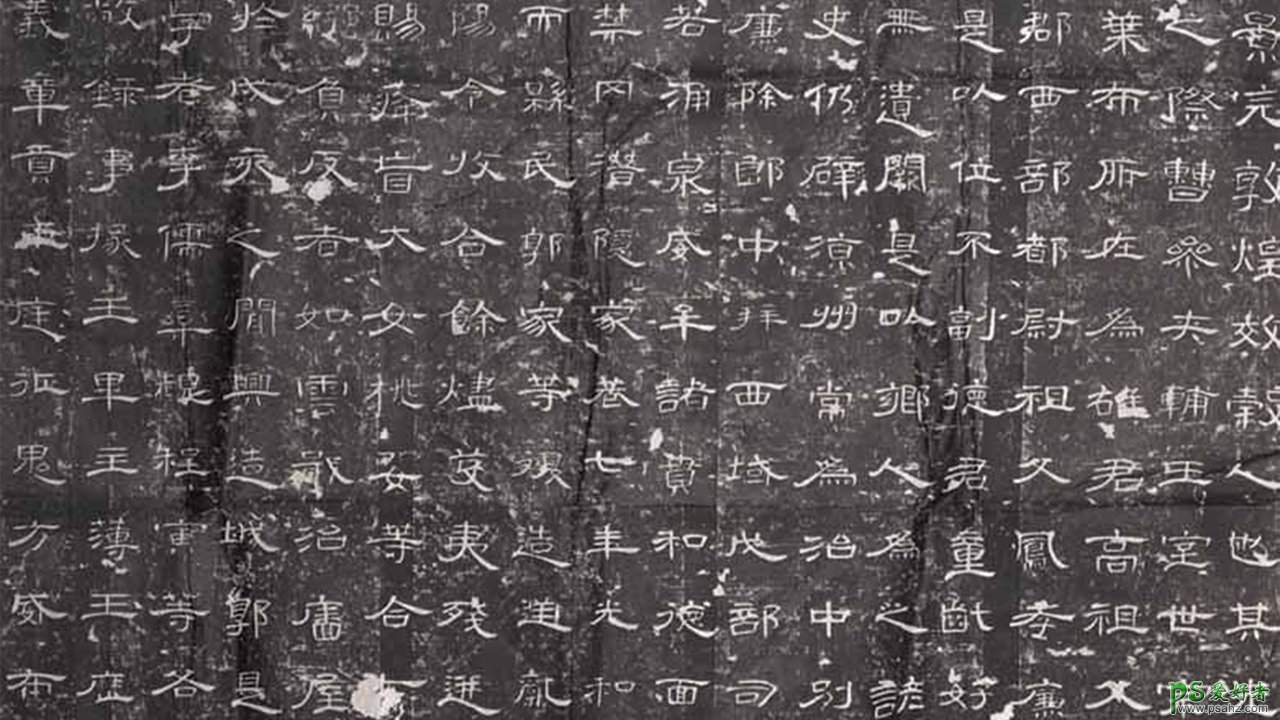 景完敦煌效穀人也其
之際曹參夾輔王室世宗
葉布所在為雄君高祖父
郡西部都尉祖父鳳孝廉
是以位不副德君童齔好
無遺闕是以鄉人為之諺
史仍辟涼州常為治中別
廉除郎中拜西域戊部司
若涌泉威牟諸賁和德面
禁网潛隱家巷七年光和
而縣民郭家等復造逆亂
陽令收合餘燼芟夷殘迸
賜瘖盲大女桃婓等合七
縱負反者如雲戢治廧屋
於戌亥之間興造城郭是
學者李儒欒規程寅等各
敞錄事掾王畢主薄王歷
義章貢王庭征鬼方威布
PS爱好者
www.psahz.com